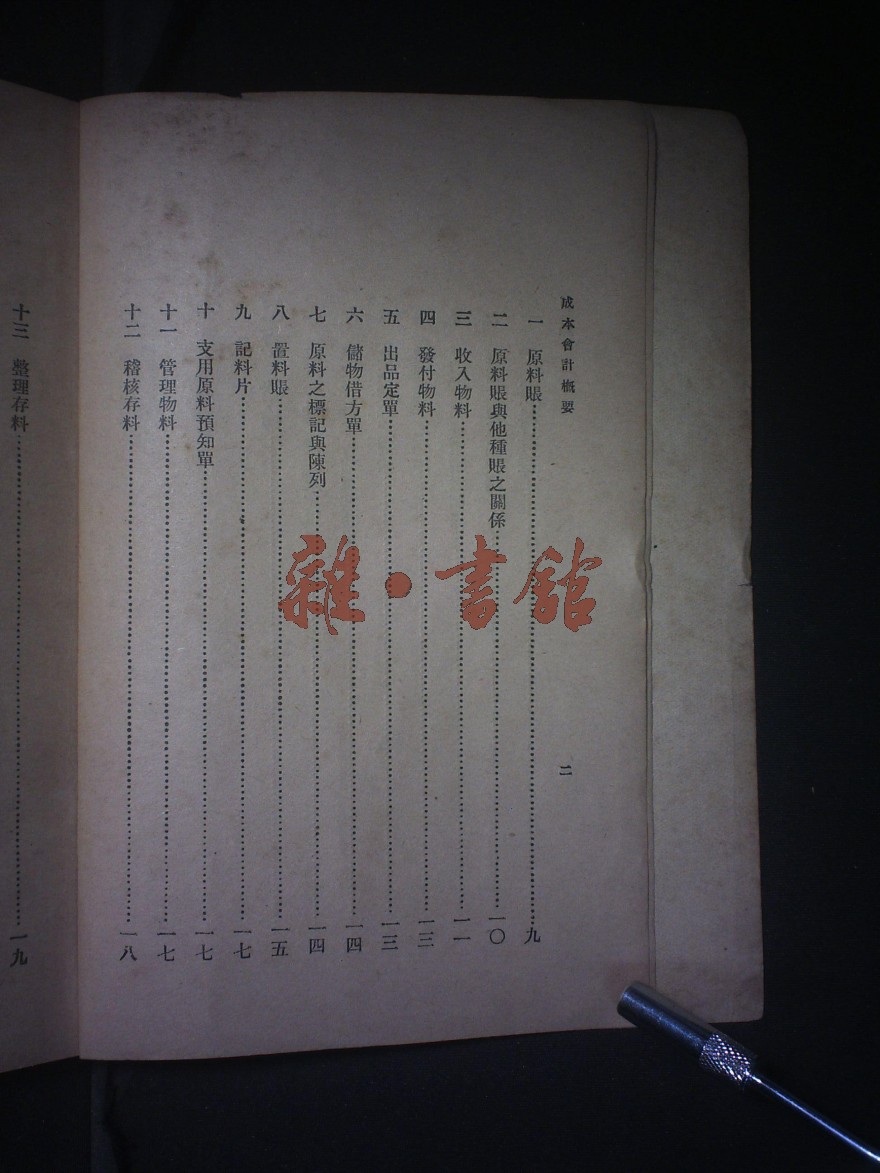 成本會計概要
二
一 原料賬……九
二 原料賬與他種賬之關係……一〇
三 收入物料……一一
四 發付物料……一三
五 出品定單……一三
六 儲物借方單……一四
七 原料之標記與陳列……一四
八 置料賬……一五
九 記料片……一七
十 支用原料預知單……一七
十一 管理物料……一七
十二 稽核存料……一八
十三 整理存料……一九
雜·書館